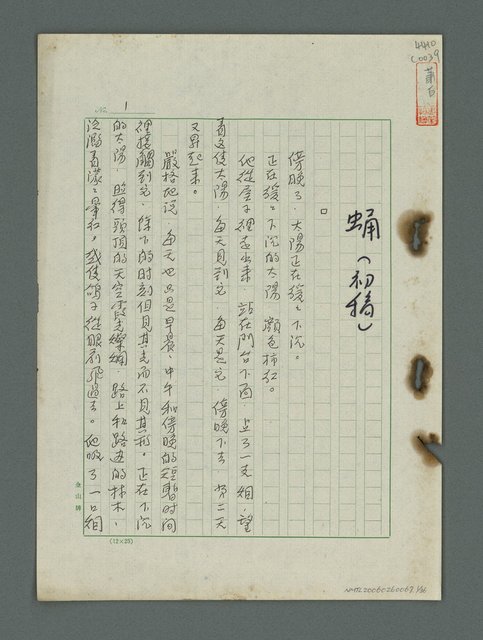 4440
(003)9
蕭白
No. 1
蛹（初稿）
□
傍晚了，太陽正在緩緩下沉。
正在緩緩下沉的太陽，顏色柿紅。
他從屋子裡走出來，站在門台下面，點了一支烟，望
着這隻太陽，每天見到它，每天是它，傍晚下去，第二天
又昇起來。
嚴格地說，每天也只是早晨、中午和傍晚的短暫時間
裡接觸到它，餘下的時刻但見其光而不見其形。正在下沉
的太陽，照得頭頂的天空 光燦爛，路上和路邊的林木，
泛濫着濛濛暈紅，或隻鴿子從眼前飛過去。他吸了一口烟
金山牌
(12×25)
NMTL20060260067 1/36